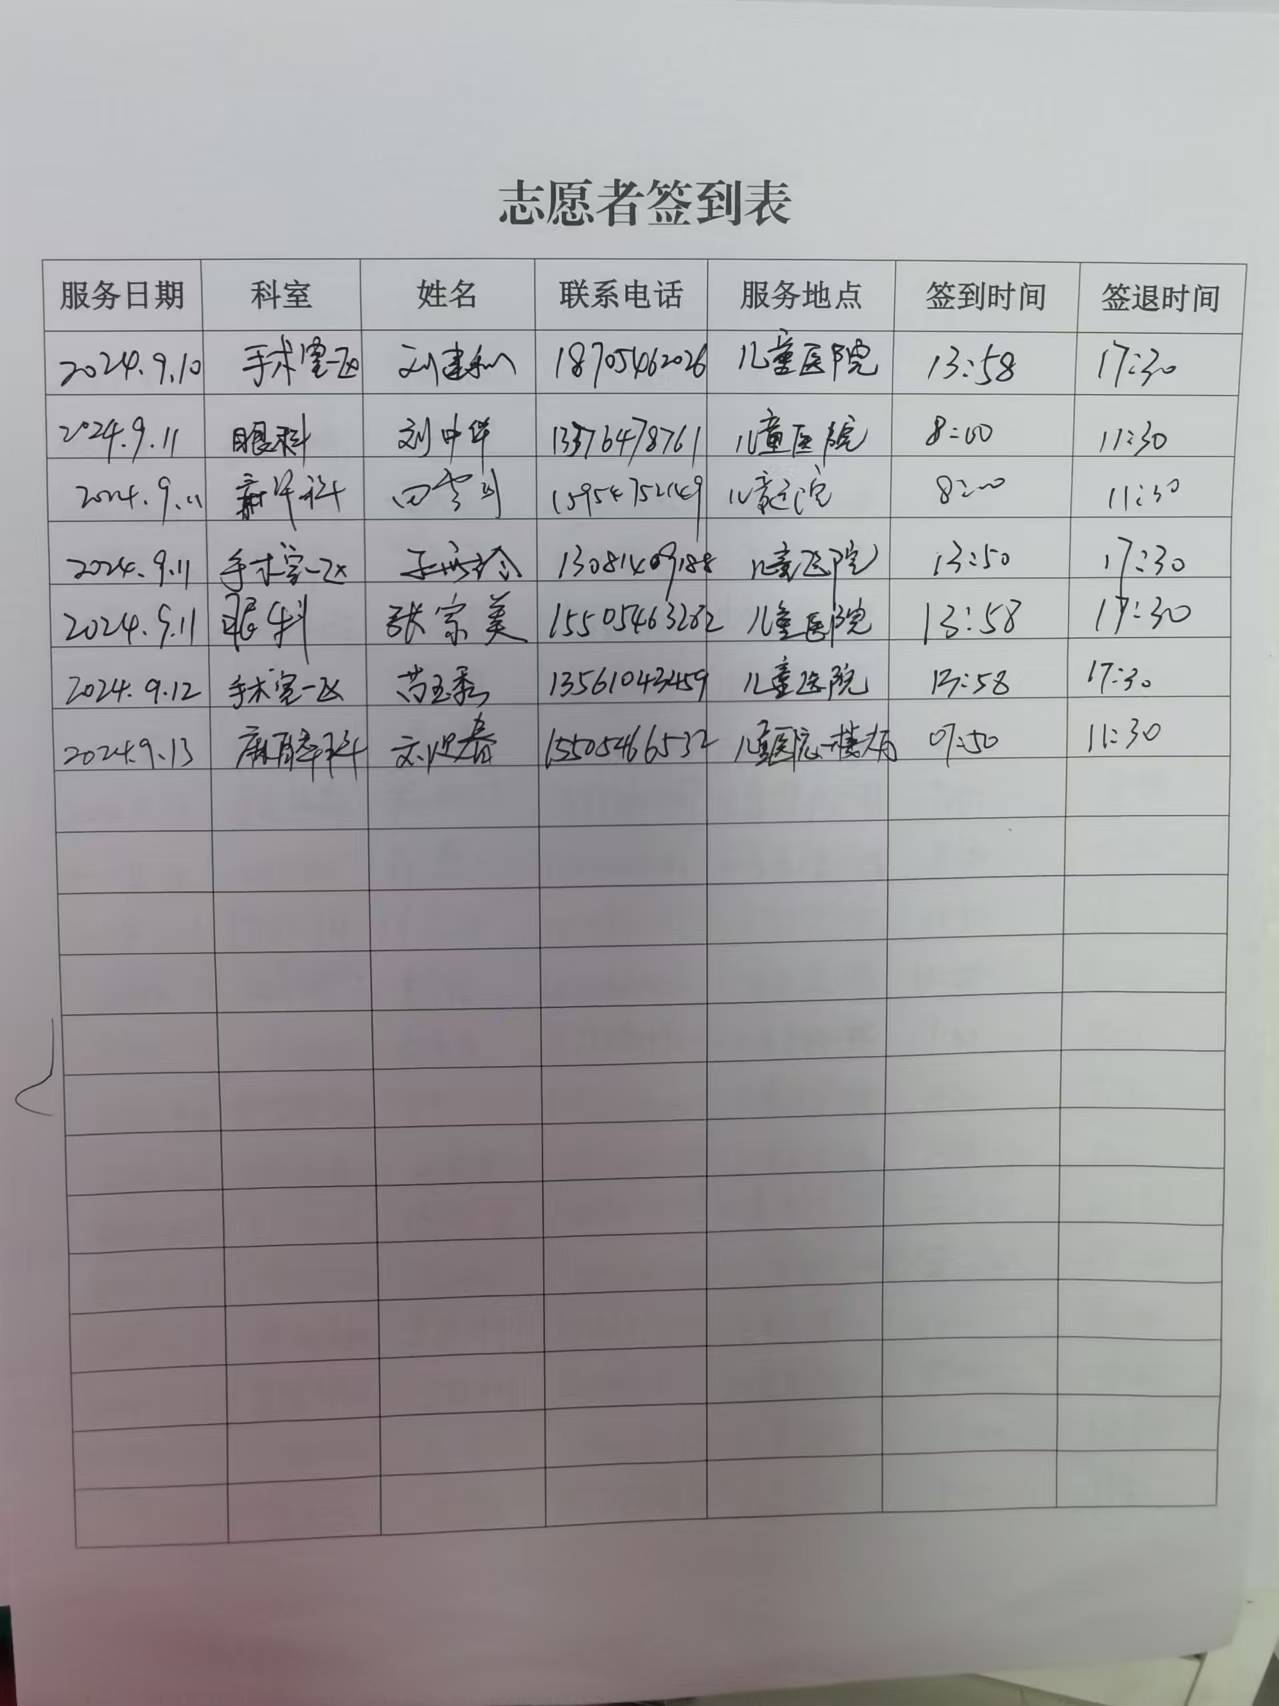 志愿者签到表
服务日期 科室 姓名 联系电话 服务地点 签到时间 签退时间
2024.9.10 手术室一区 刘建和 18705462026 儿童医院 13:58 17:30
2024.9.11 眼科 刘中华 13376478761 儿童医院 8:00 11:30
2024.9.11 麻醉科 儿童医院 8:00 11:30
2024.9.11 手术室一区 13081409188 儿童医院 13:50 17:30
2024.9.11 眼科 张宗美 15505463282 儿童医院 13:58 17:30
2024.9.12 手术室一区 儿童医院 13:58 17:30
2024.9.13 麻醉科 15505466532 儿童医院一楼大厅 07:50 11:30